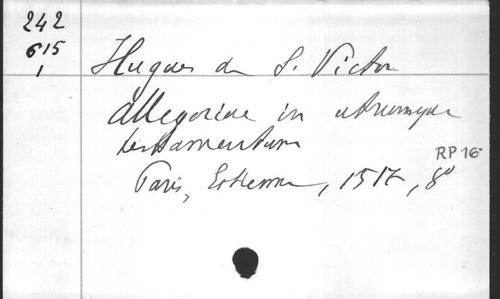 242
615
1
Hugues de S. Victor
allegoriae in utrumque
testamentum
RP 16
Paris, Estienne, 1517, 8°